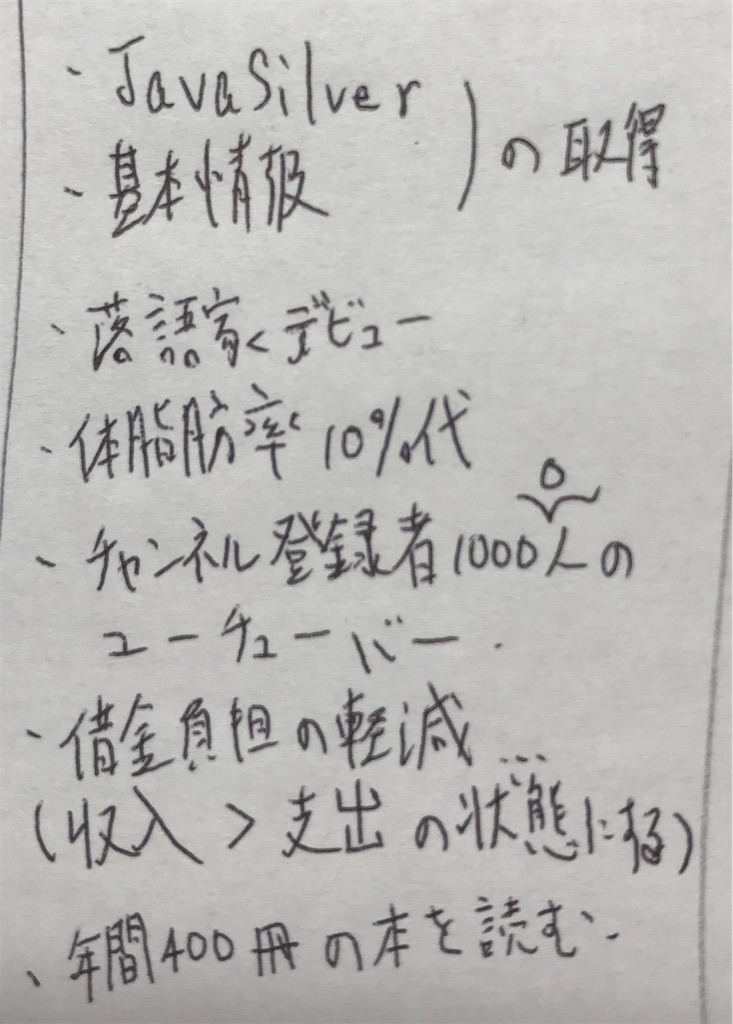 ・JavaSilver
・基本情報 )の取得
・落語家くデビュー
・体脂肪率10%代
・チャンネル登録者10000人の
ユーチューバー.
・借金負担の軽減…
(収入>支出の状態にする)
・年間400冊の本を読む、